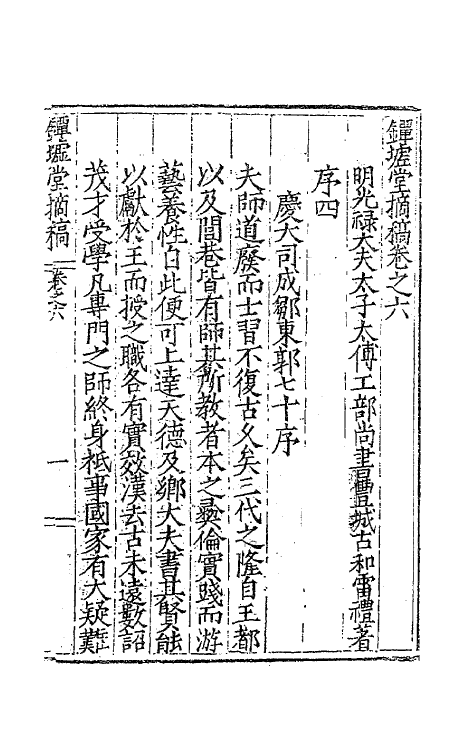 鐔墟堂摘稿卷之六
明光祿大夫太子太傅工部尚書豐城古和雷禮著
序四
慶大司成鄒東郭七十序
夫師道廢而士習不復古久矣三代之隆自王都
以及閭巷皆有師其所教者本之彝倫實踐而游
藝養性自此便可上達天德及鄉大夫書其賢能
以獻於王而授之職各有實效漢去古未遠數詔
茂才受學凡專門之師終身祗事國家有大疑難
鐔墟堂摘稿 卷之六 一